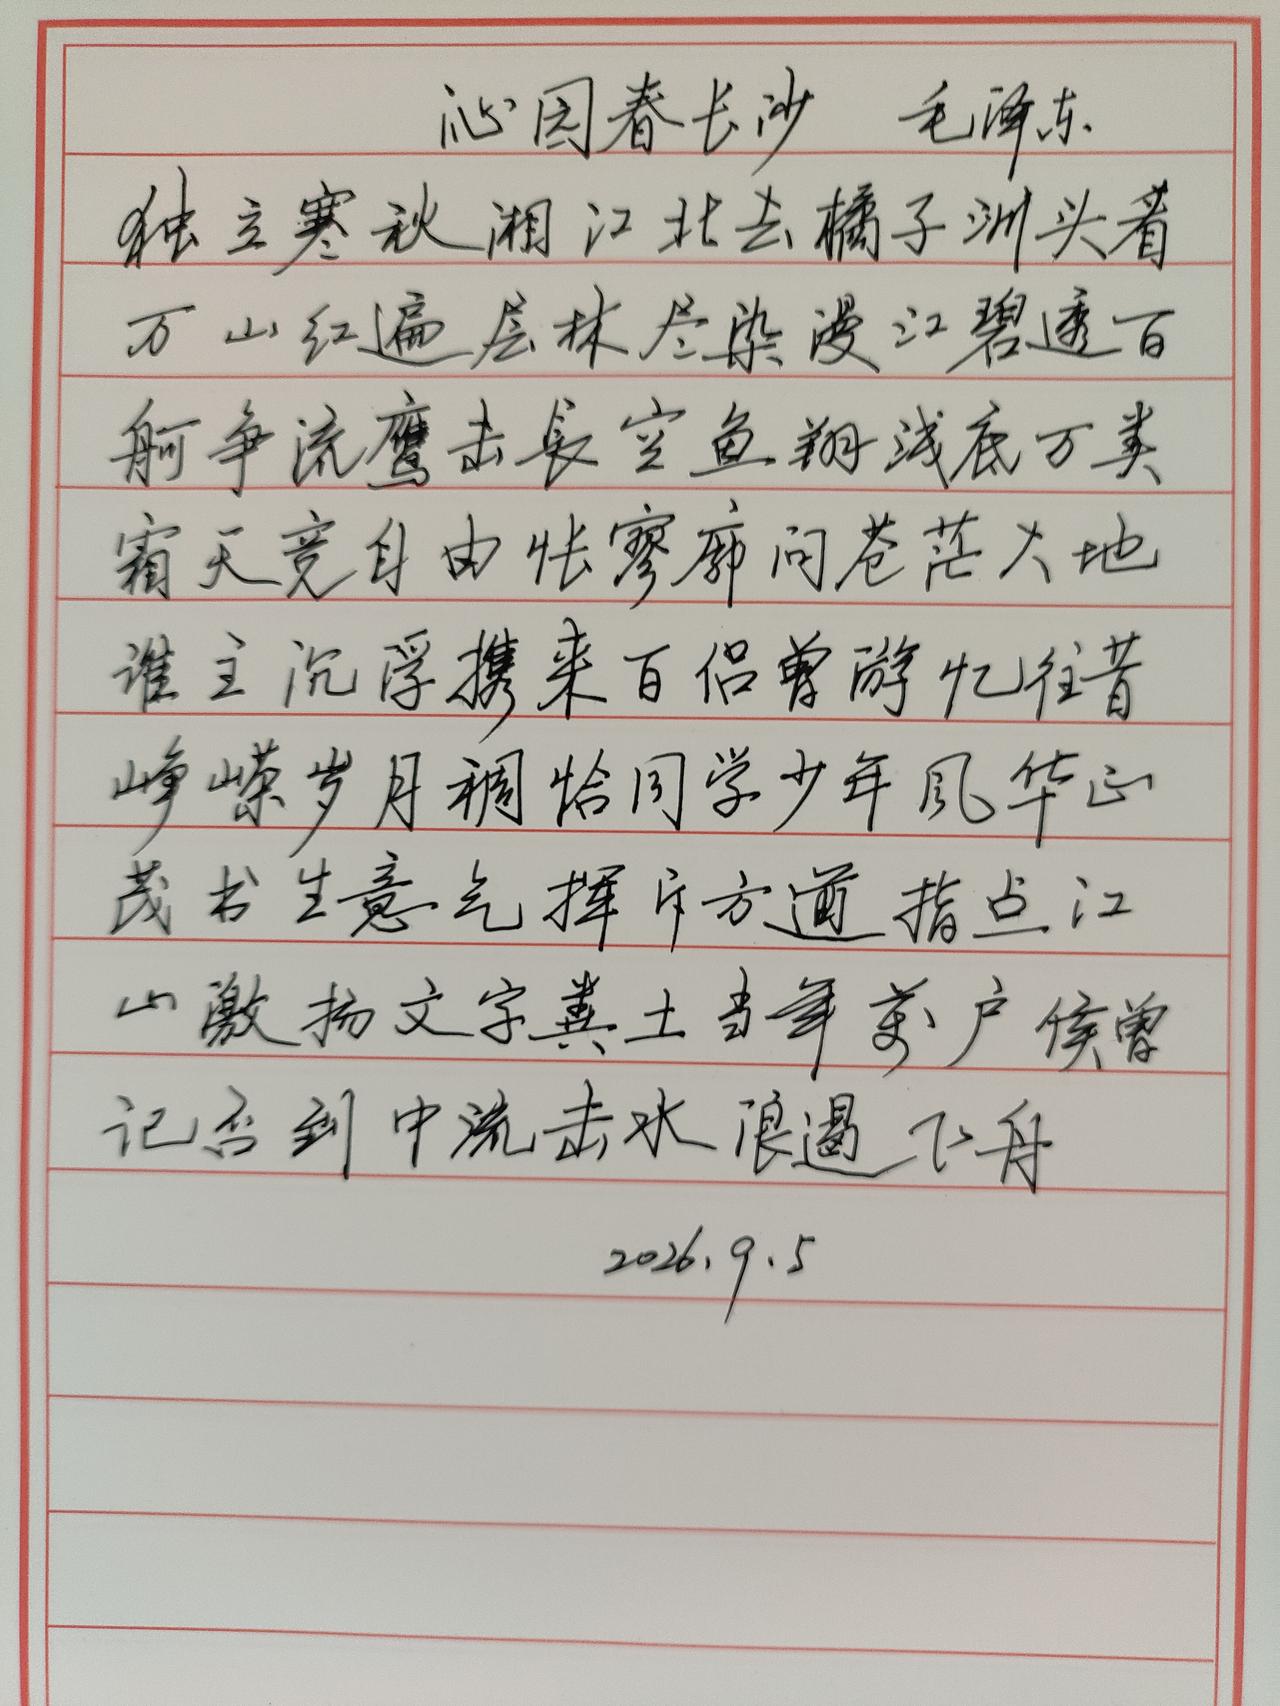 沁园春长沙 毛泽东
独立寒秋湘江北去橘子洲头看
万山红遍层林尽染漫江碧透百
舸争流鹰击長空鱼翔浅底万类
霜天竞自由怅寥廓问苍茫大地
谁主沉浮携来百侣曾游忆往昔
峥嵘岁月稠恰同学少年风华正
茂书生意气挥斥方遒指点江
山激扬文字粪土当年萬户侯曾
记否到中流击水浪遏飞舟
2026.9.5